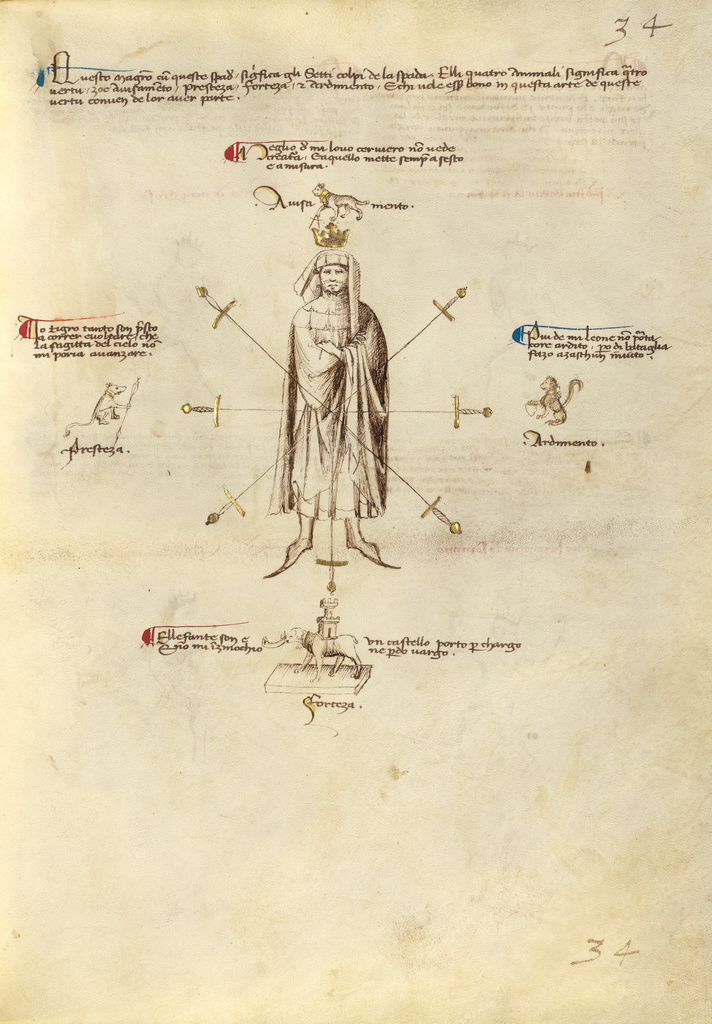 34
Questo Magro cū queste spadē significa gli Setti colpi de la spada. Elli quatro animali significa q̄tro
vertu, zoe avisamēto, presteza, forteza, & ardimento. E chi vole ess̄ bono in questa arte de queste
vertu conven de lor aver parte.
Meglio d̄ mi lovo cerviero nō vede
creatura, E aquello mette semp̄ a sesto
e a misura.
Avisa mento.
Io tigro tanto son p̄sto
a correr e voltare, che
la sagitta del cielo nō
mi poria avanzare.
Più de mi leone nō porta
core ardito, po di bataglia
fazo a zaschun invito.
Presteza.
Ardimento.
Ellefante son e
un castello porto p chargo
E nō mi inzinochio
ne p̄do vargo.
Forteza.
34